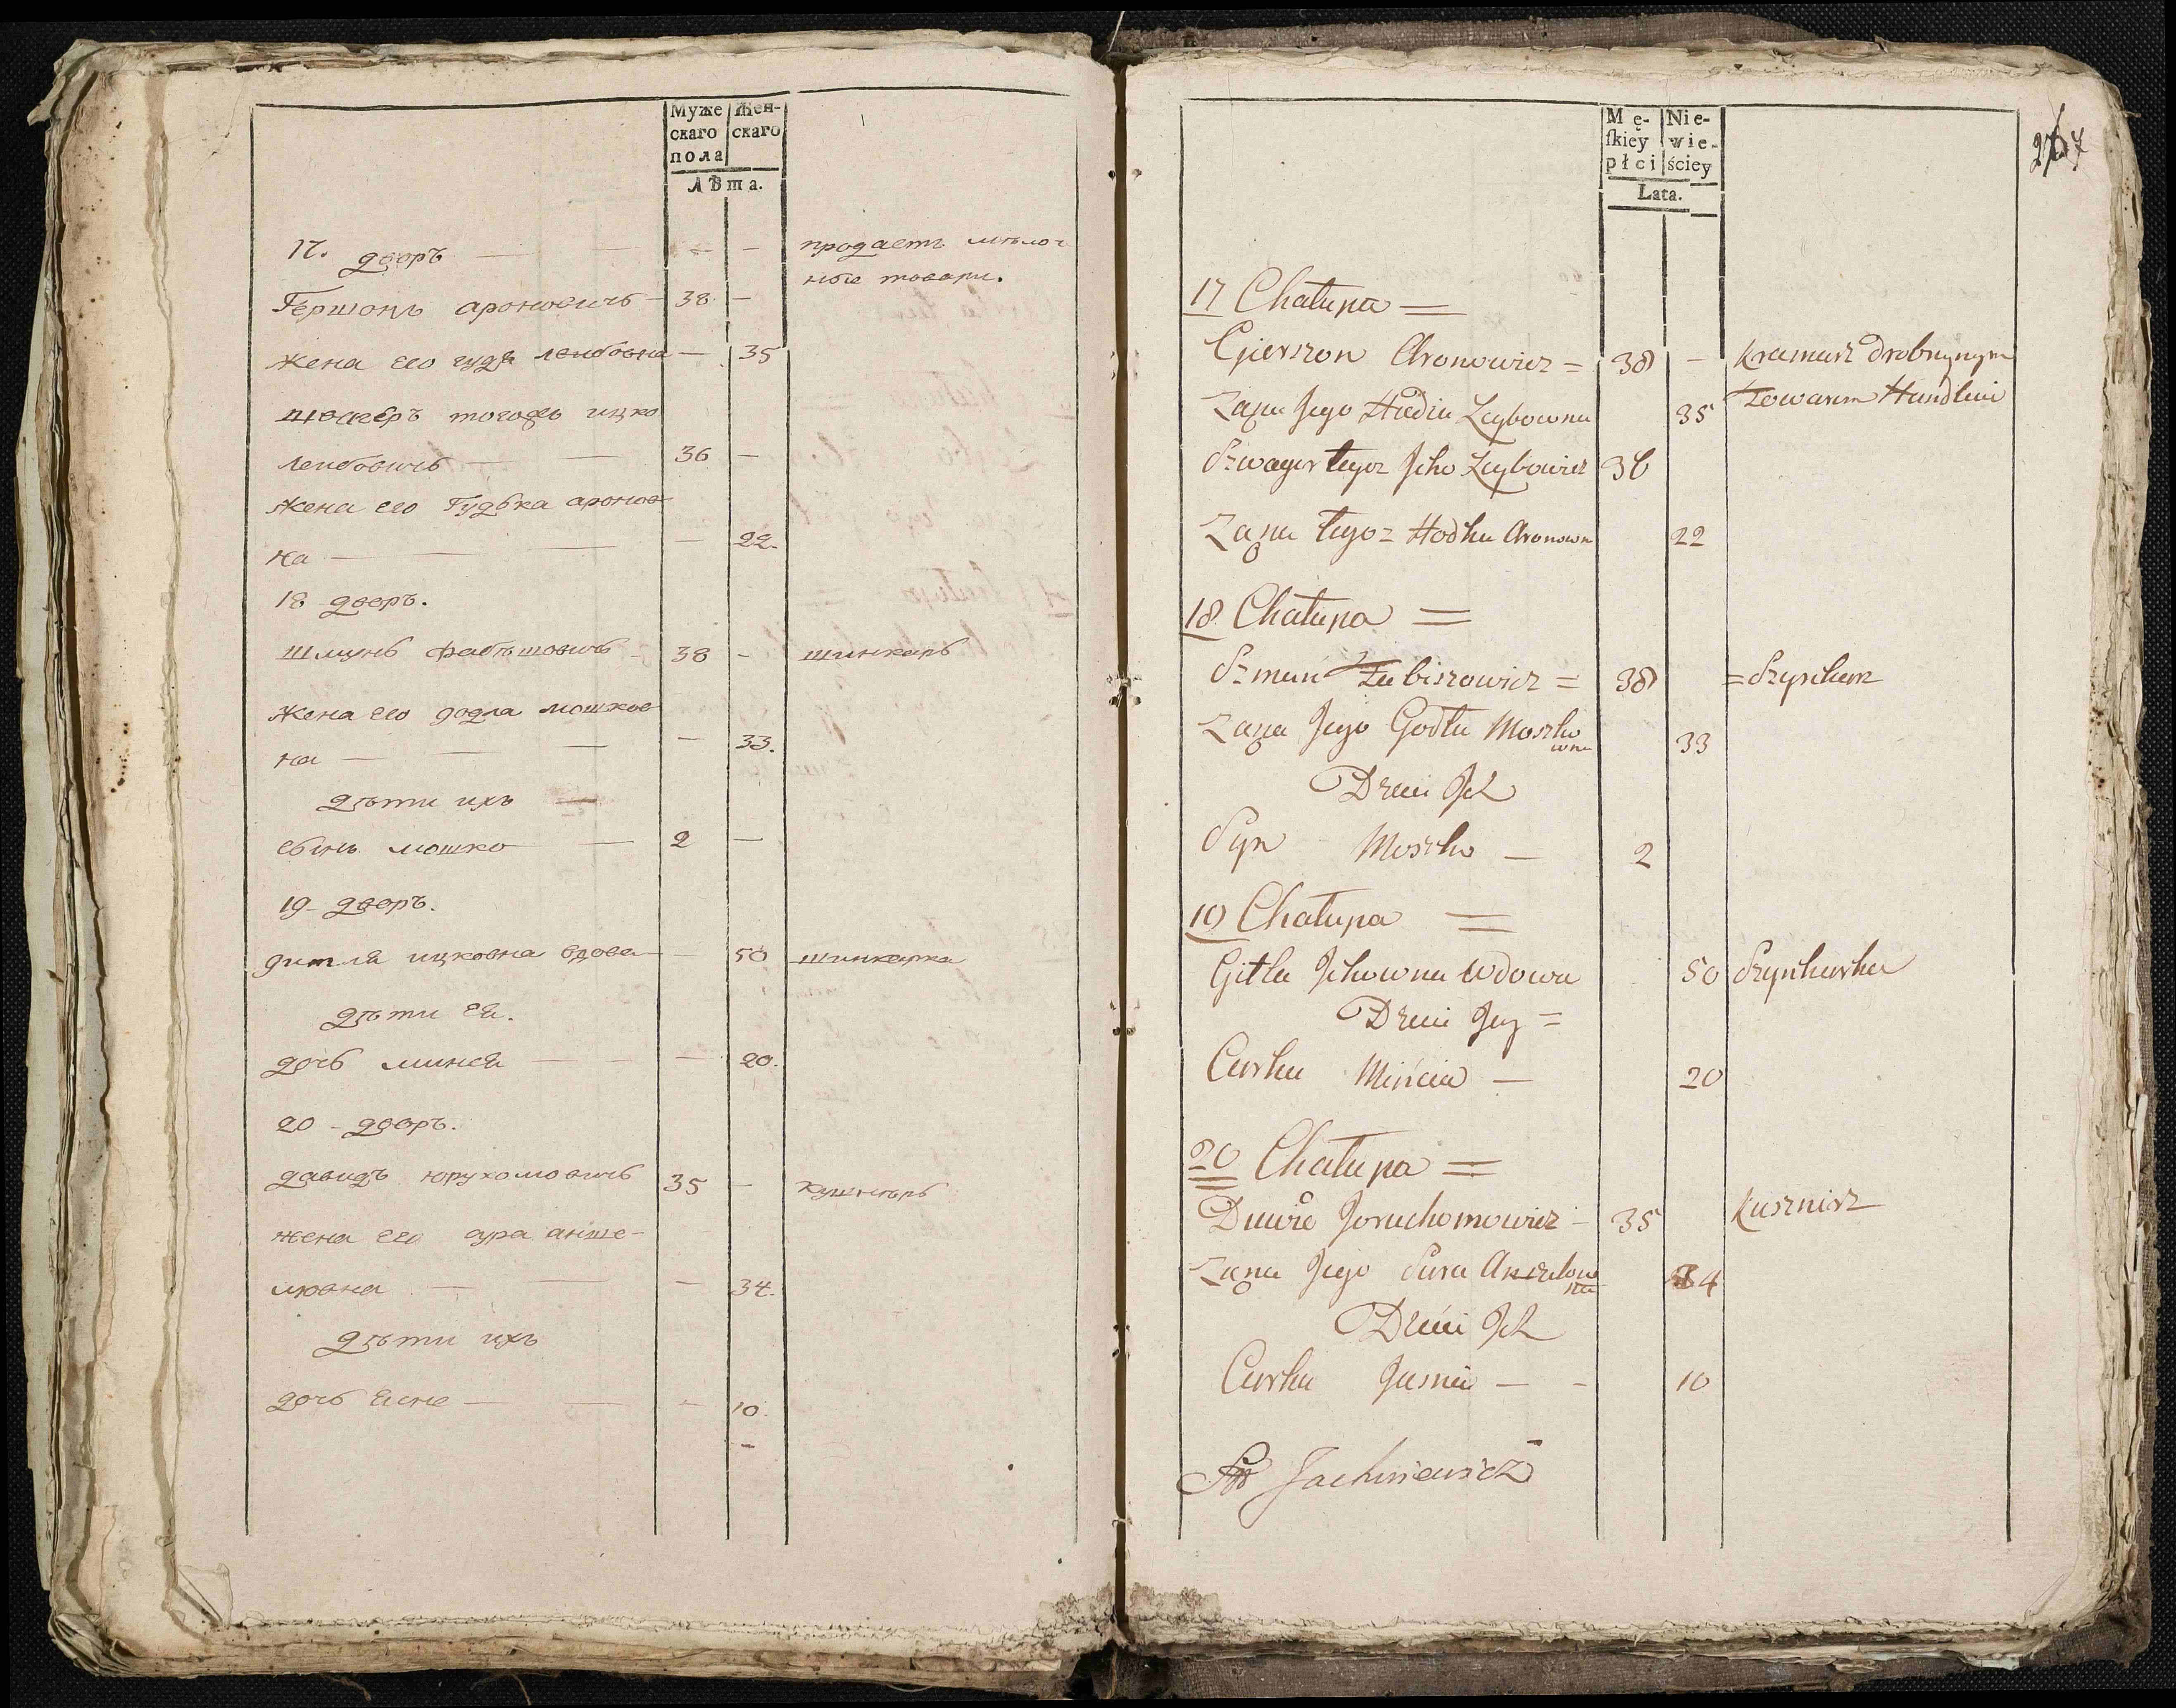 Муже
скаго
пола
Жен-
скаго
Лѣта.
17. дворъ — — —
продаетъ мѣлоч
ные товари.
Гершонъ ароновичъ — 38 —
жена его гудя лейбовна — 35
шваґеръ тогожъ ицко
лейбовичъ — — 36 —
жена его Гудька аронов
на — — — — 22.
18 дворъ.
шмунь фабѣшовичъ — 38 — шинкарь
жена его годла мошков
на — — — 33.
дѣти ихъ —
сынъ мошко — 2 —
19 дворъ.
гитля ицковна вдова — — 50 шинкарка
дѣти ея.
дочь минся — — — 20.
20 - дворъ.
давидъ юрухомовичъ 35 — кушнѣръ
жена его сура анше-
лювна — — — 34.
дѣти ихъ
дочь ясне — — — 10.
Mę-
skiey
płci
Nie-
wie-
ściey
Lata.
17 Chałupa =
Gierszon Aronowicz = 38 — Kramarz drobnynym
Towarem Handluie
Żona Jego Hudia Leybowna 35
Szwagier tegoż Jcko Leybowicz 36
Żona tego = Hodka Aronown 22
18 Chałupa =
Szmun Fabiszowicz = 38 = Szynkarz
Żona Jego Godła Moszko
wna 33
Dzieci Jch
Syn Moszko — 2
19 Chałupa =
Gitla Jckowna Wdowa 50 Szynkarka
Dzieci Jey =
Curka Mińcia — 20
20 Chałupa =
Dawid Joruchomowicz — 35 Kusznierz
Żona Jego Sura Anszelow
na 34
Dzieci Jch
Curka Jasnia — - 10
Jachniewicz